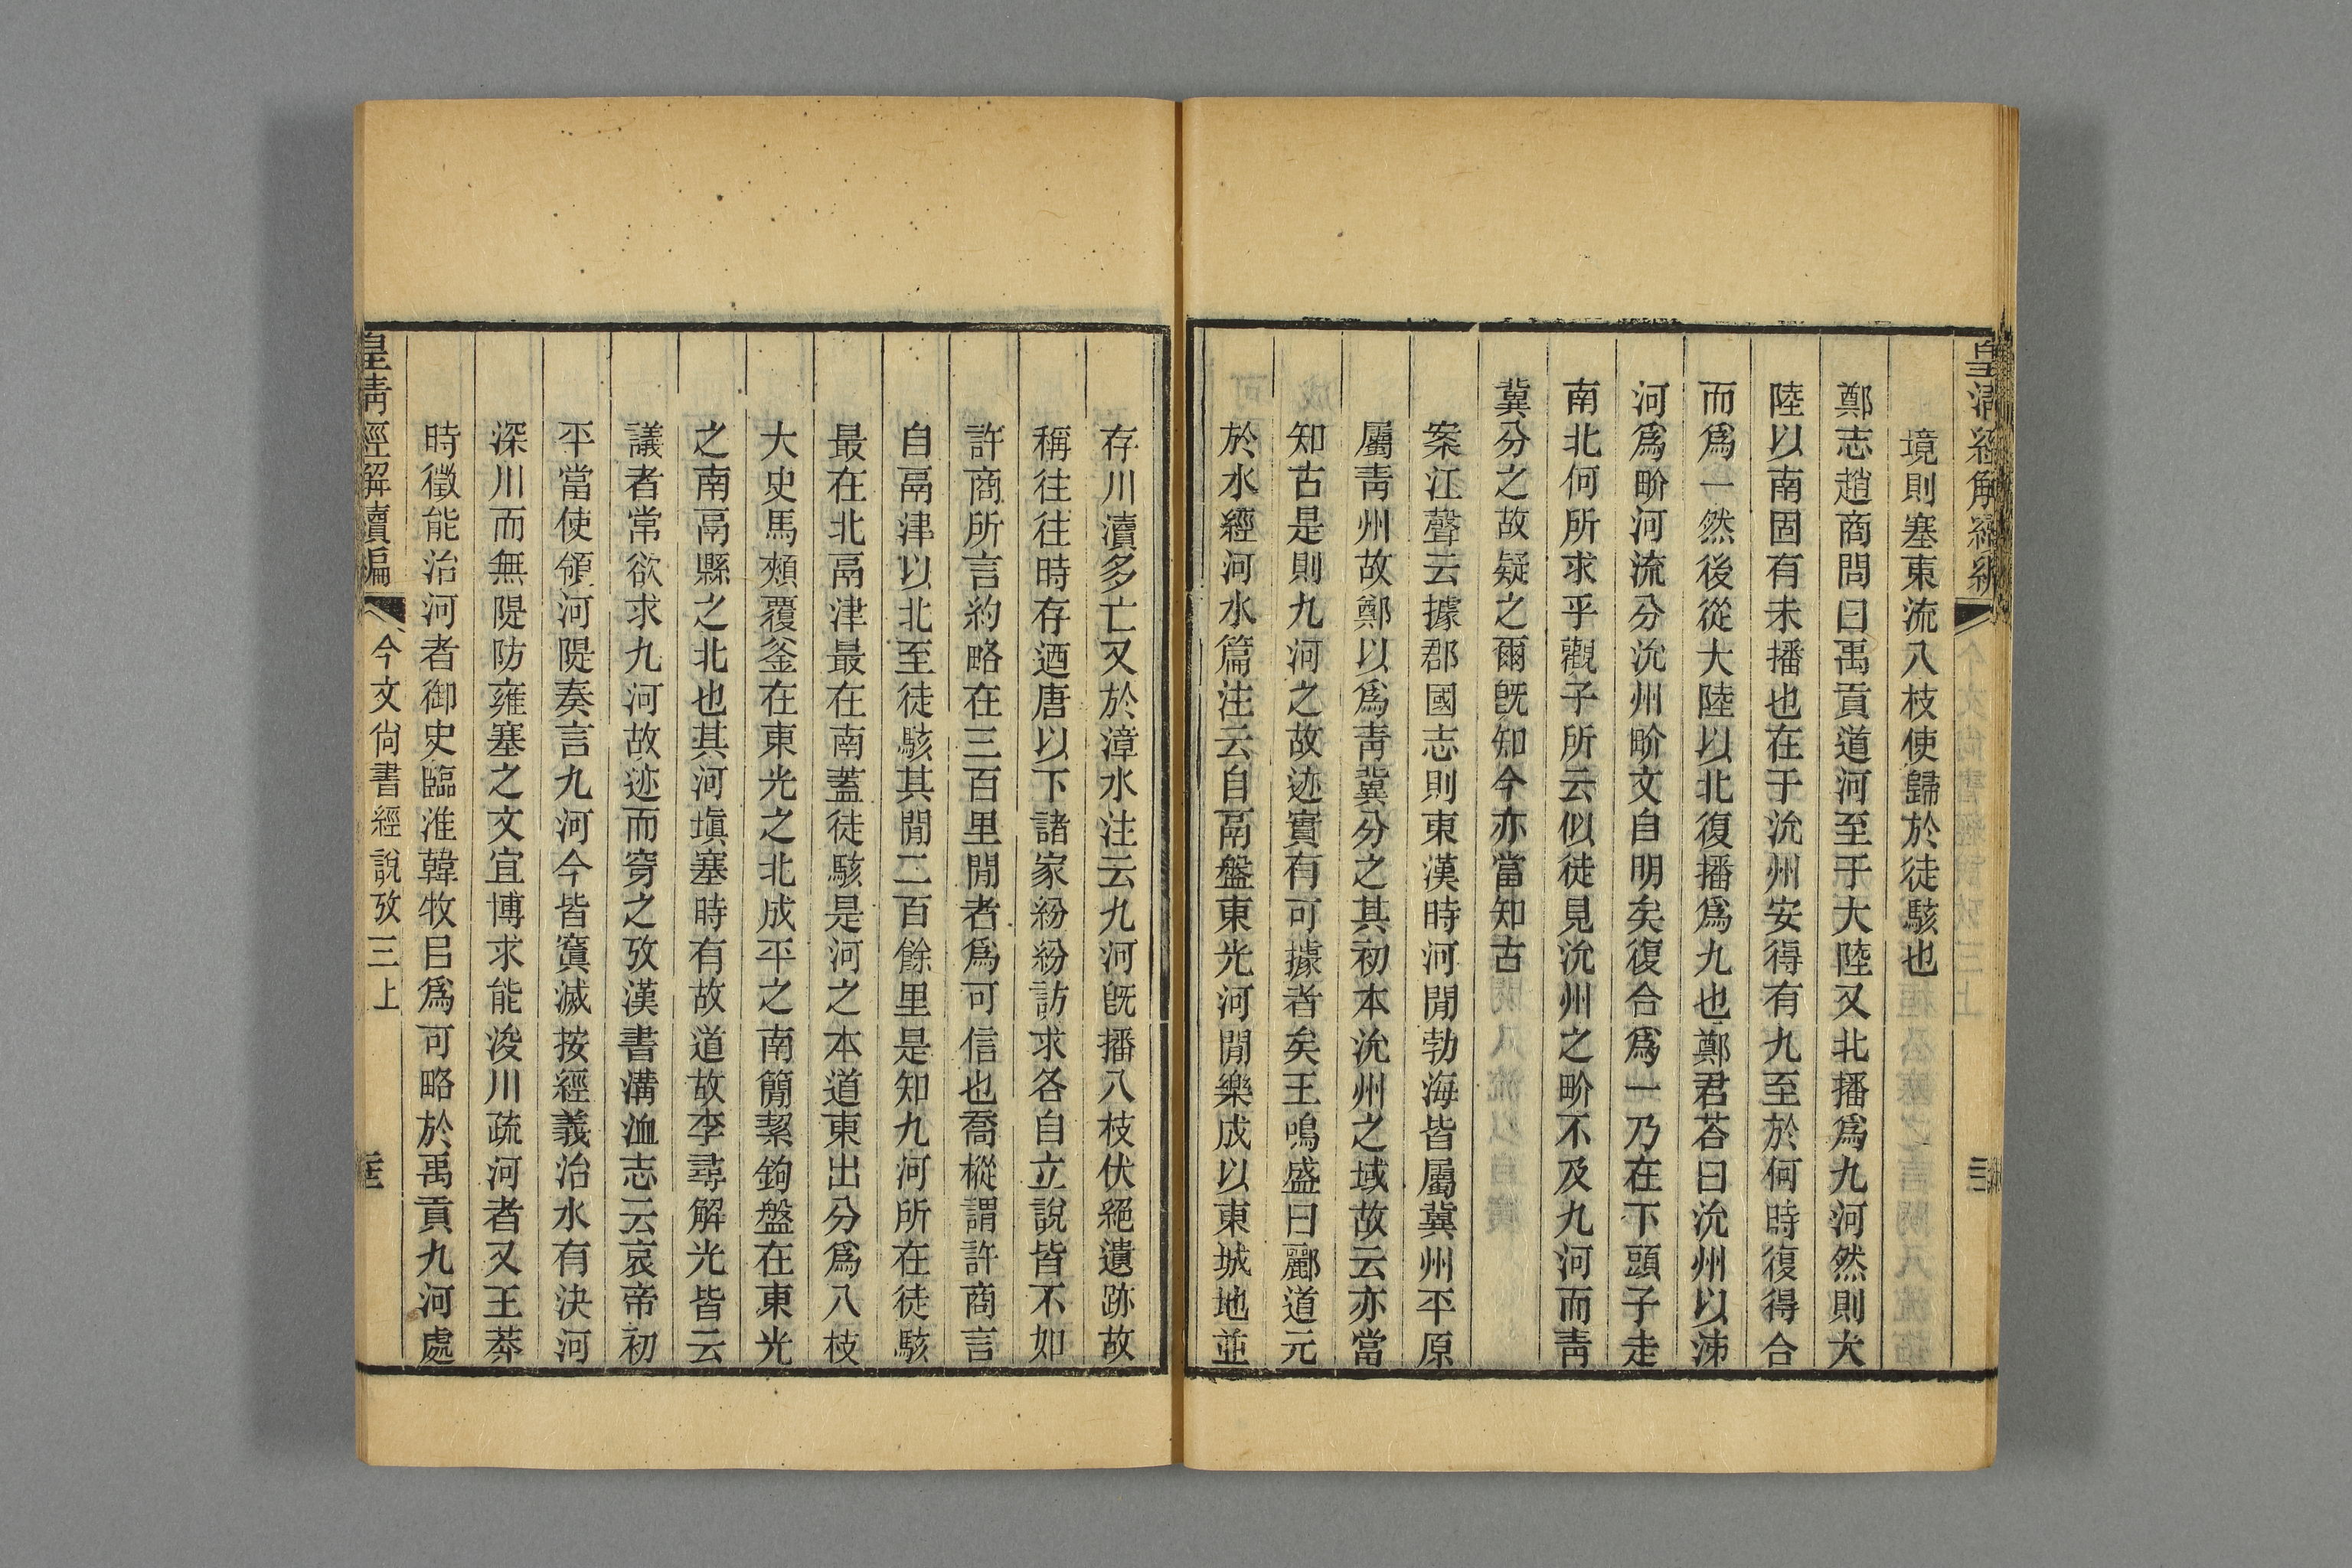 皇清經解續編
境則塞東流八枝使歸於徒駭也
鄭志趙商問曰禹貢道河至于大陸又北播爲九河然則大
陸以南固有未播也在于沇州安得有九至於何時復得合
而爲一然後從大陸以北復播爲九也鄭君荅曰沇州以泲
河爲畍河流分沇州畍文自明矣復合爲一乃在下頭子走
南北何所求乎觀子所云似徒見沇州之畍不及九河而靑
冀分之故疑之爾旣知今亦當知古
案江聲云據郡國志則東漢時河閒勃海皆屬冀州平原
屬靑州故鄭以爲靑冀分之其初本沇州之域故云亦當
知古是則九河之故迹實有可據者矣王鳴盛曰酈道元
於水經河水篇注云自鬲盤東光河閒樂成以東城地並
存川瀆多亡又於漳水注云九河旣播八枝伏絕遺跡故
稱往往時存迺唐以下諸家紛紛訪求各自立說皆不如
許商所言約略在三百里閒者爲可信也喬樅謂許商言
自鬲津以北至徒駭其閒二百餘里是知九河所在徒駭
最在北鬲津最在南蓋徒駭是河之本道東出分爲八枝
大史馬頰覆釜在東光之北成平之南簡絜鉤盤在東光
之南鬲縣之北也其河塡塞時有故道故李尋解光皆云
議者常欲求九河故迹而穿之攷漢書溝洫志云哀帝初
平當使領河隄奏言九河今皆窴滅按經義治水有決河
深川而無隄防雍塞之文宜博求能浚川疏河者又王莽
時徵能治河者御史臨淮韓牧㠯爲可略於禹貢九河處
皇清經解續編
今文尙書經說攷三上